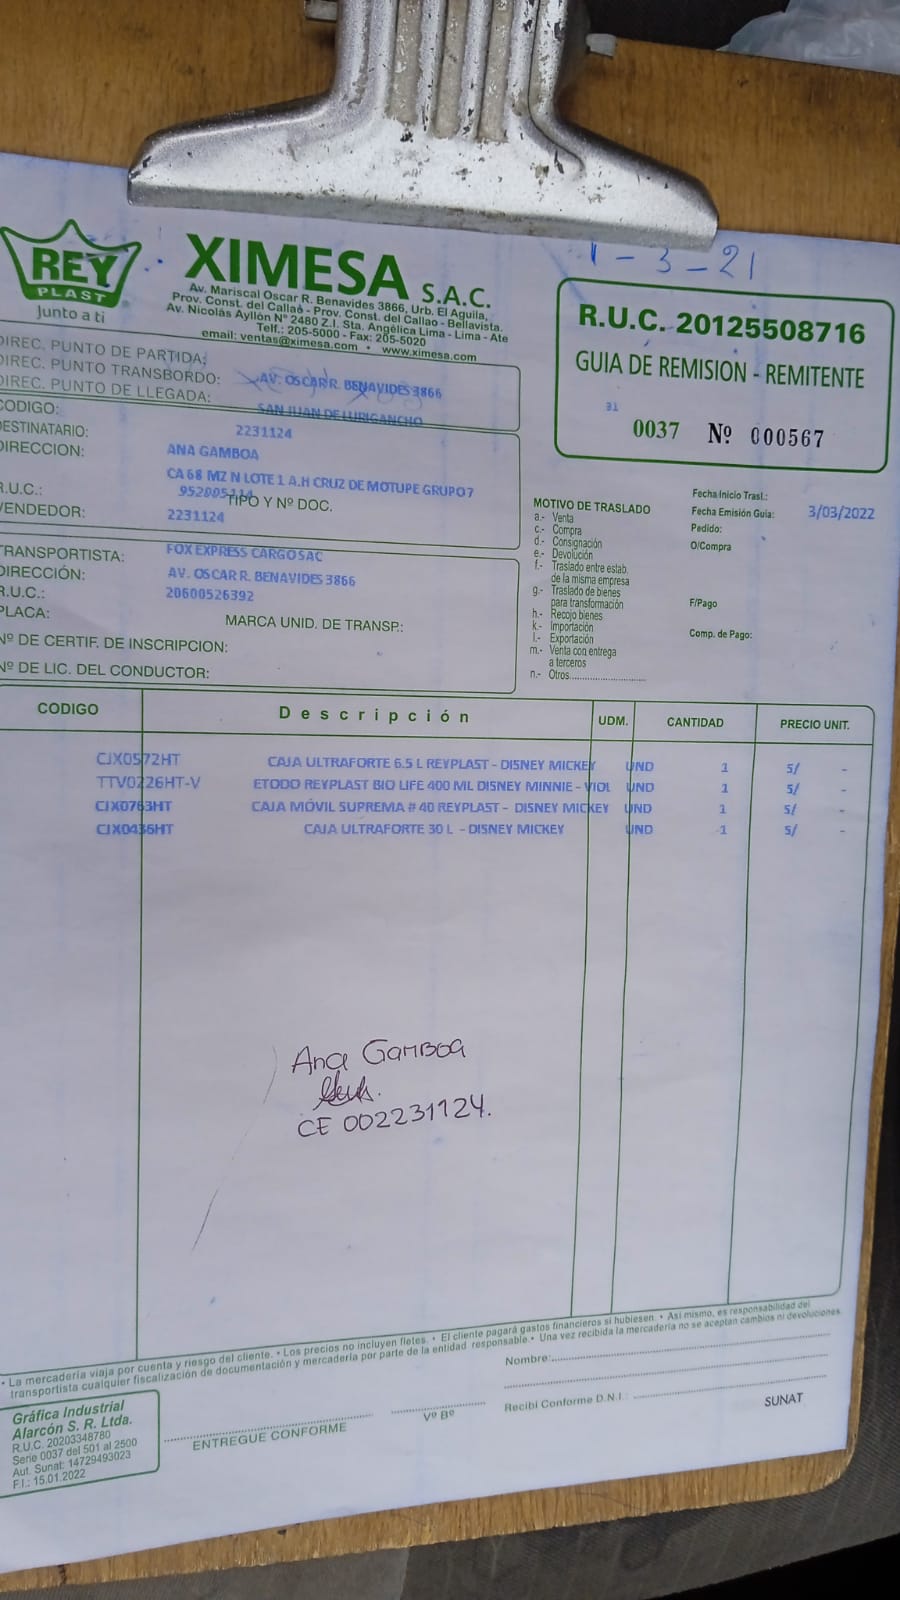 1 - 3 - 21
REY
PLAST
Junto a ti
XIMESA S.A.C.
Av. Mariscal Oscar R. Benavides 3866, Urb. El Aguila,
Prov. Const. del Callao - Prov. Const. del Callao - Bellavista.
Av. Nicolás Ayllón Nº 2480 Z.I. Sta. Angélica Lima - Lima - Ate
Telf.: 205-5000 - Fax: 205-5020
email: ventas@ximesa.com • www.ximesa.com
R.U.C. 20125508716
GUIA DE REMISION - REMITENTE
31
0037 Nº 000567
DIREC. PUNTO DE PARTIDA:
DIREC. PUNTO TRANSBORDO: AV. OSCAR R. BENAVIDES 3866
DIREC. PUNTO DE LLEGADA: SAN JUAN DE LURIGANCHO
CODIGO: 2231124
DESTINATARIO: ANA GAMBOA
DIRECCION: CA 68 MZ N LOTE 1 A.H CRUZ DE MOTUPE GRUPO 7
R.U.C.: 952005114 TIPO Y Nº DOC.
VENDEDOR: 2231124
TRANSPORTISTA: FOX EXPRESS CARGO SAC
DIRECCIÓN: AV. OSCAR R. BENAVIDES 3866
R.U.C.: 20600526392
PLACA: MARCA UNID. DE TRANSP.:
Nº DE CERTIF. DE INSCRIPCION:
Nº DE LIC. DEL CONDUCTOR:
MOTIVO DE TRASLADO
a.- Venta
c.- Compra
d.- Consignación
e.- Devolución
f.- Traslado entre estab.
de la misma empresa
g.- Traslado de bienes
para transformación
h.- Recojo bienes
k.- Importación
l.- Exportación
m.- Venta con entrega
a terceros
n.- Otros
Fecha Inicio Trasl.:
Fecha Emisión Guia: 3/03/2022
Pedido:
O/Compra
F/Pago
Comp. de Pago:
CODIGO Descripción UDM. CANTIDAD PRECIO UNIT.
CJX0572HT CAJA ULTRAFORTE 6.5 L REYPLAST - DISNEY MICKEY UND 1 S/ -
TTV0226HT-V ETODO REYPLAST BIO LIFE 400 ML DISNEY MINNIE - VIOL UND 1 S/ -
CJX0763HT CAJA MÓVIL SUPREMA # 40 REYPLAST - DISNEY MICKEY UND 1 S/ -
CJX0436HT CAJA ULTRAFORTE 30 L - DISNEY MICKEY UND 1 S/ -
Ana Gamboa
CE 002231124.
• La mercadería viaja por cuenta y riesgo del cliente. • Los precios no incluyen fletes. • El cliente pagará gastos financieros si hubiesen. • Asi mismo, es responsabilidad del
transportista cualquier fiscalización de documentación y mercadería por parte de la entidad responsable. • Una vez recibida la mercadería no se aceptan cambios ni devoluciones.
Gráfica Industrial
Alarcón S. R. Ltda.
R.U.C. 20203348780
Serie 0037 del 501 al 2500
Aut. Sunat: 14729493023
F.I.: 15.01.2022
ENTREGUE CONFORME
Vº Bº
Nombre:
Recibi Conforme D.N.I.:
SUNAT